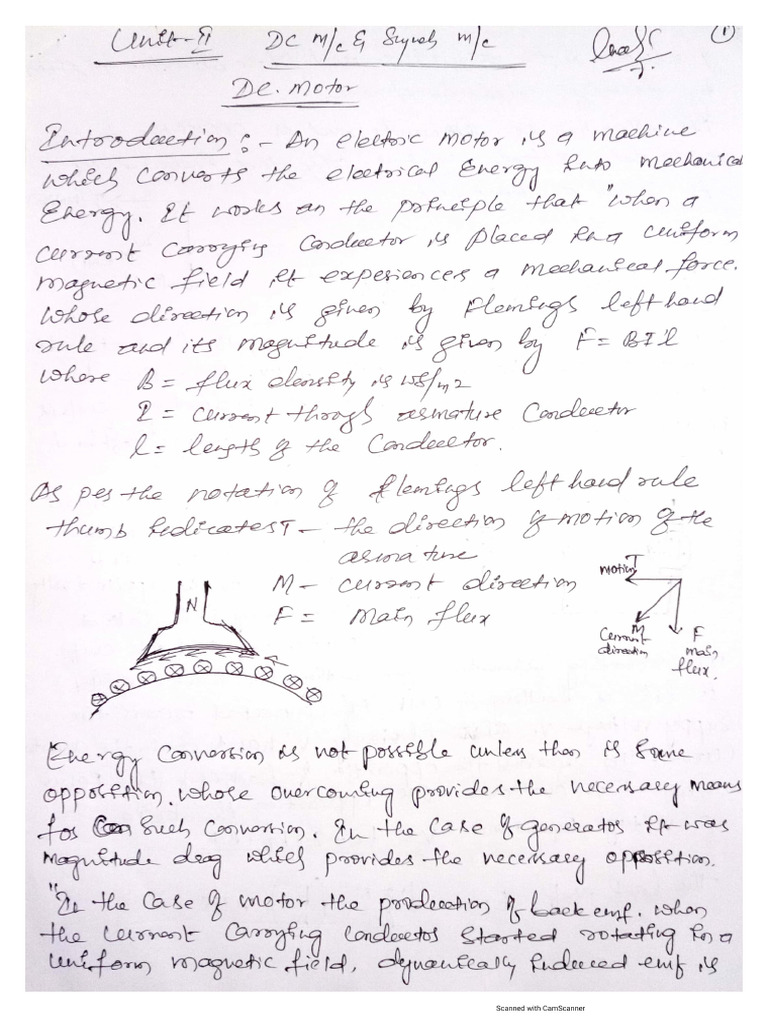 Unit-II DC M/c & Synch m/c
(1)
DC. Motor
Introduction :- An electric motor is a machine
which converts the electrical Energy into mechanical
Energy. It works on the principle that "when a
current carrying conductor is placed in a uniform
magnetic field it experiences a mechanical force.
whose direction is given by Flemings left hand
rule and its magnitude is given by F = BIl
where B = flux density is wb/m2
I = current through armature Conductor
l = length of the Conductor.
As per the notation of flemings left hand rule
thumb indicates T - the direction of motion of the
armature
M - current direction
F = Main flux
N
motion T
M
Current
direction
F
main
flux.
Energy conversion is not possible unless then is some
opposition. whose overcoming provides the necessary means
for such conversion. In the case of generator it was
magnitude drag which provides the necessary opposition.
"In the case of motor the production of back emf. when
the current carrying conductor started rotating in a
uniform magnetic field, dynamically induced emf is
Scanned with CamScanner